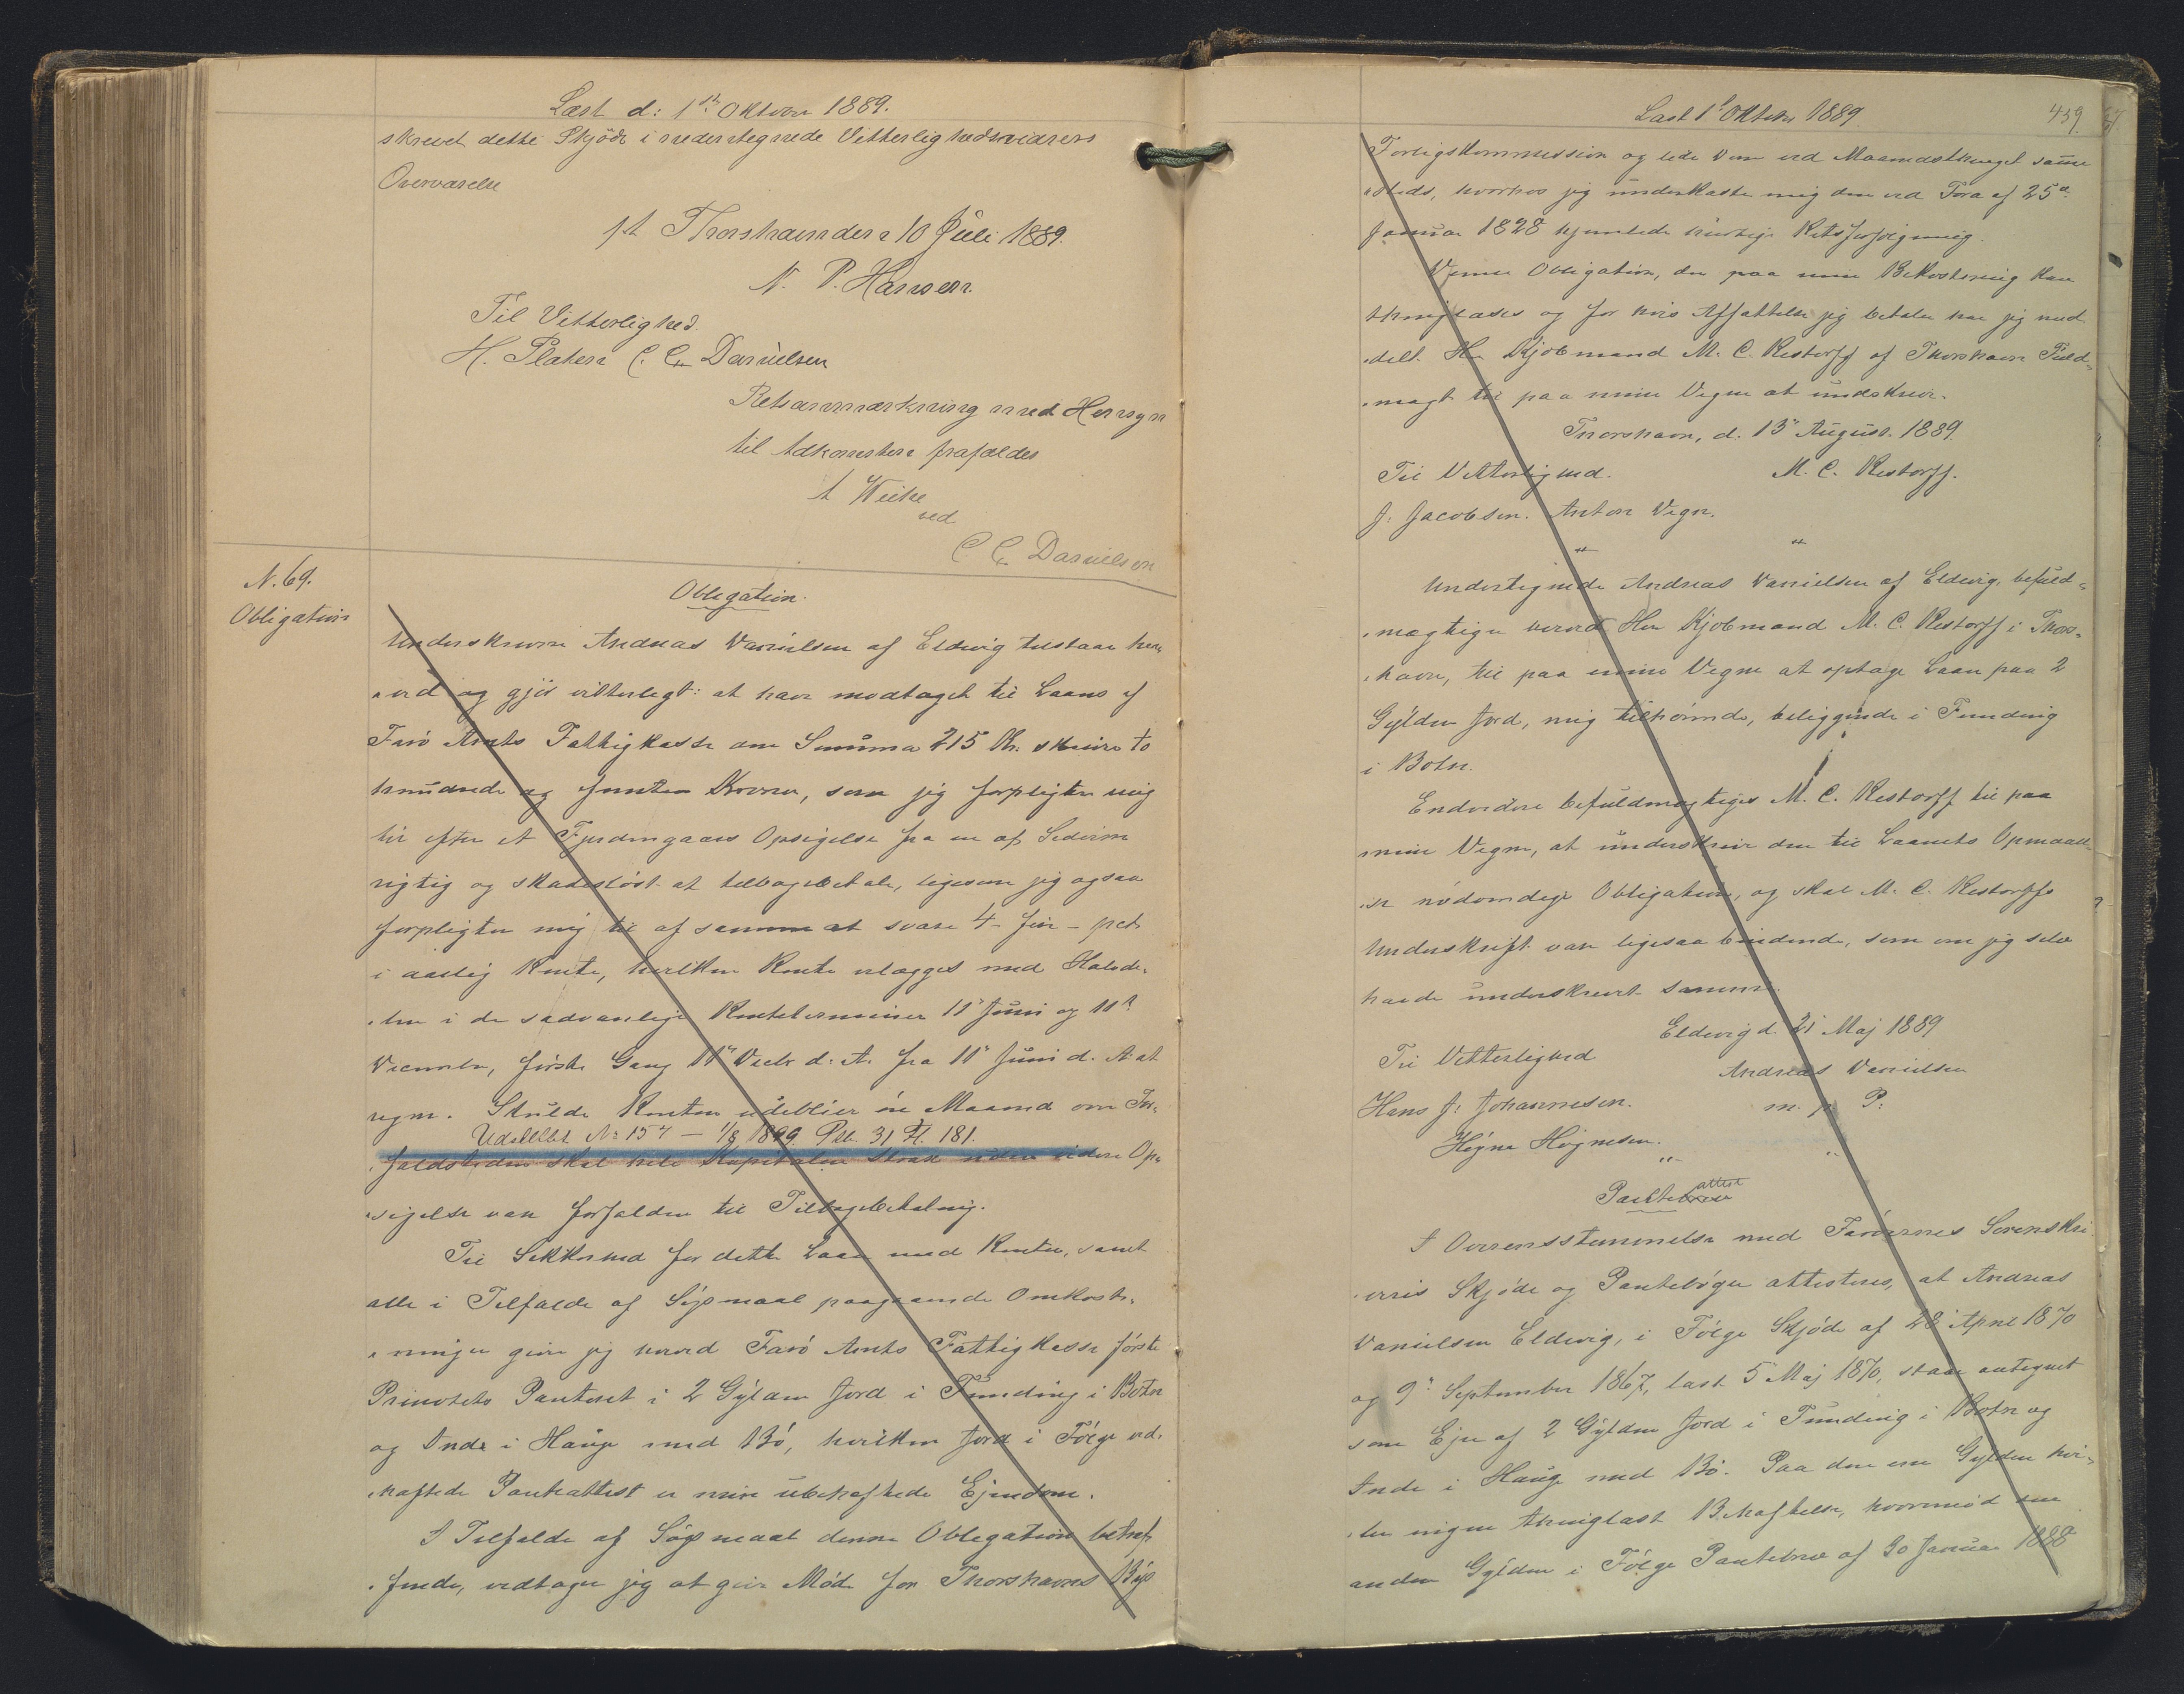 Læst d: 1ste Oktober 1889.
skrevet dette Skjöde i nedentegnede Vitterlighedsvidners
Overværelse
pt Thorshavn den 10 Juli 1889.
N. P. Hansen.
Til Vitterlighed.
H. Platen C. C. Danielsen
Retsanmærkning med Hensyn
til Adkomsten frafaldes
A Weihe
ved
C C. Danielsen
N. 69.
Obligation
Obligation.
Underskrevne Andreas Danielsen af Eldevig tilstaar her„
„ved og gjör vitterligt: at have modtaget til Laans af
Farö Amts Fattigkasse en Summa 215 Kr. skriver to
hundrede og femten Kroner, som jeg forpligter mig
til efter et Fjerdingaars Opsigelse fra en af Siderne
rigtig og skadeslöst at tilbagebetale, ligesom jeg ogsaa
forpligter mig til af samme at svare 4 - fire - pct.
i aarlig Rente, hvilken Rente erlægges med Halvde„
„len i de sædvanlige Rentterminer 11' Juni og 11'
December, förste Gang 11' Decbr d: A. fra 11' Juni d. A. at
regne. Skulde Renten udeblive én Maaned over For„
Udslettet No 157 – 1/8 1899 Ptb. 31 Fl. 181.
„faldstiden skal hele Kapitalen strax uden videre Op„
„sigelse være forfalden til Tilbagebetaling.
Til Sikkerhed for dette Laan med Renter, samt
alle i Tilfælde af Sögsmaal paagaaende Omkost„
„ninger giver jeg herved Farö Amts Fattigkasse förste
Prioritets Panteret i 2 Gylden Jord i Funding i Botn
og Inde i Hauge med Bö, hvilken Jord i Fölge ved„
„hæftede Panteattest er min ubehæftede Ejendom.
I Tilfælde af Sögsmaal denne Obligation betræf„
„fende, vedtager jeg at give Möde for Thorshavns Byes
Læst 1' Oktober 1889.
459.
Forligskommission og lide Dom ved Maanedstinget samme„
„steds, hvorhos jeg underkaster mig den ved Fora af 25d
Januar 1828 hjemlede hurtige Retsforfölgning.
Denne Obligation, der paa min Bekostning kan
thinglæses og for hvis Affattelse jeg betaler har jeg med„
„delt Hr Kjöbmand M. C. Restorff af Thorshavn Fuld„
„magt til paa mine Vegne at underskrive.
Thorshavn, d. 13' August 1889.
Til Vitterlighed. M. C. Restorff.
J. Jacobsen. Anton Degn.
Undertegnede Andreas Danielsen af Eldevig, befuld„
„mægtiger herved Her Kjöbmand M. C. Restorff i Thors„
„havn, til paa mine Vegne at optage Laan paa 2
Gylden Jord, mig tilhörende, beliggende i Funding
i Botn.
Endvidere befuldmægtiges M. C. Restorff til paa
mine Vegne, at underskrive den til Laanets Opnaael„
„se nödvendige Obligation, og skal M. C. Restorffs
Underskrift være ligesaa bindende, som om jeg selv
havde underskrevet samme.
Eldevig d. 21' Maj 1889
Til Vitterlighed Andreas Danielsen
Hans J: Johannesen. m. p. P:
Högne Högnesen.
Panteattest
I Overensstemmelse med Færöernes Sorenskri„
„veris Skjöde og Panteböger attesteres, at Andreas
Danielsen Eldevig, i Fölge Skjöde af 28' April 1870
og 9' September 1867, læst 5' Maj 1870, staar antegnet
som Ejer af 2 Gylden Jord i Funding i Botn og
Inde i Hauge med Bö. Paa den ene Gylden hvi„
„ler ingen thinglæst Behæftelse, hvorimod den
anden Gylden i Fölge Pantebrev af 30 Januar 1888